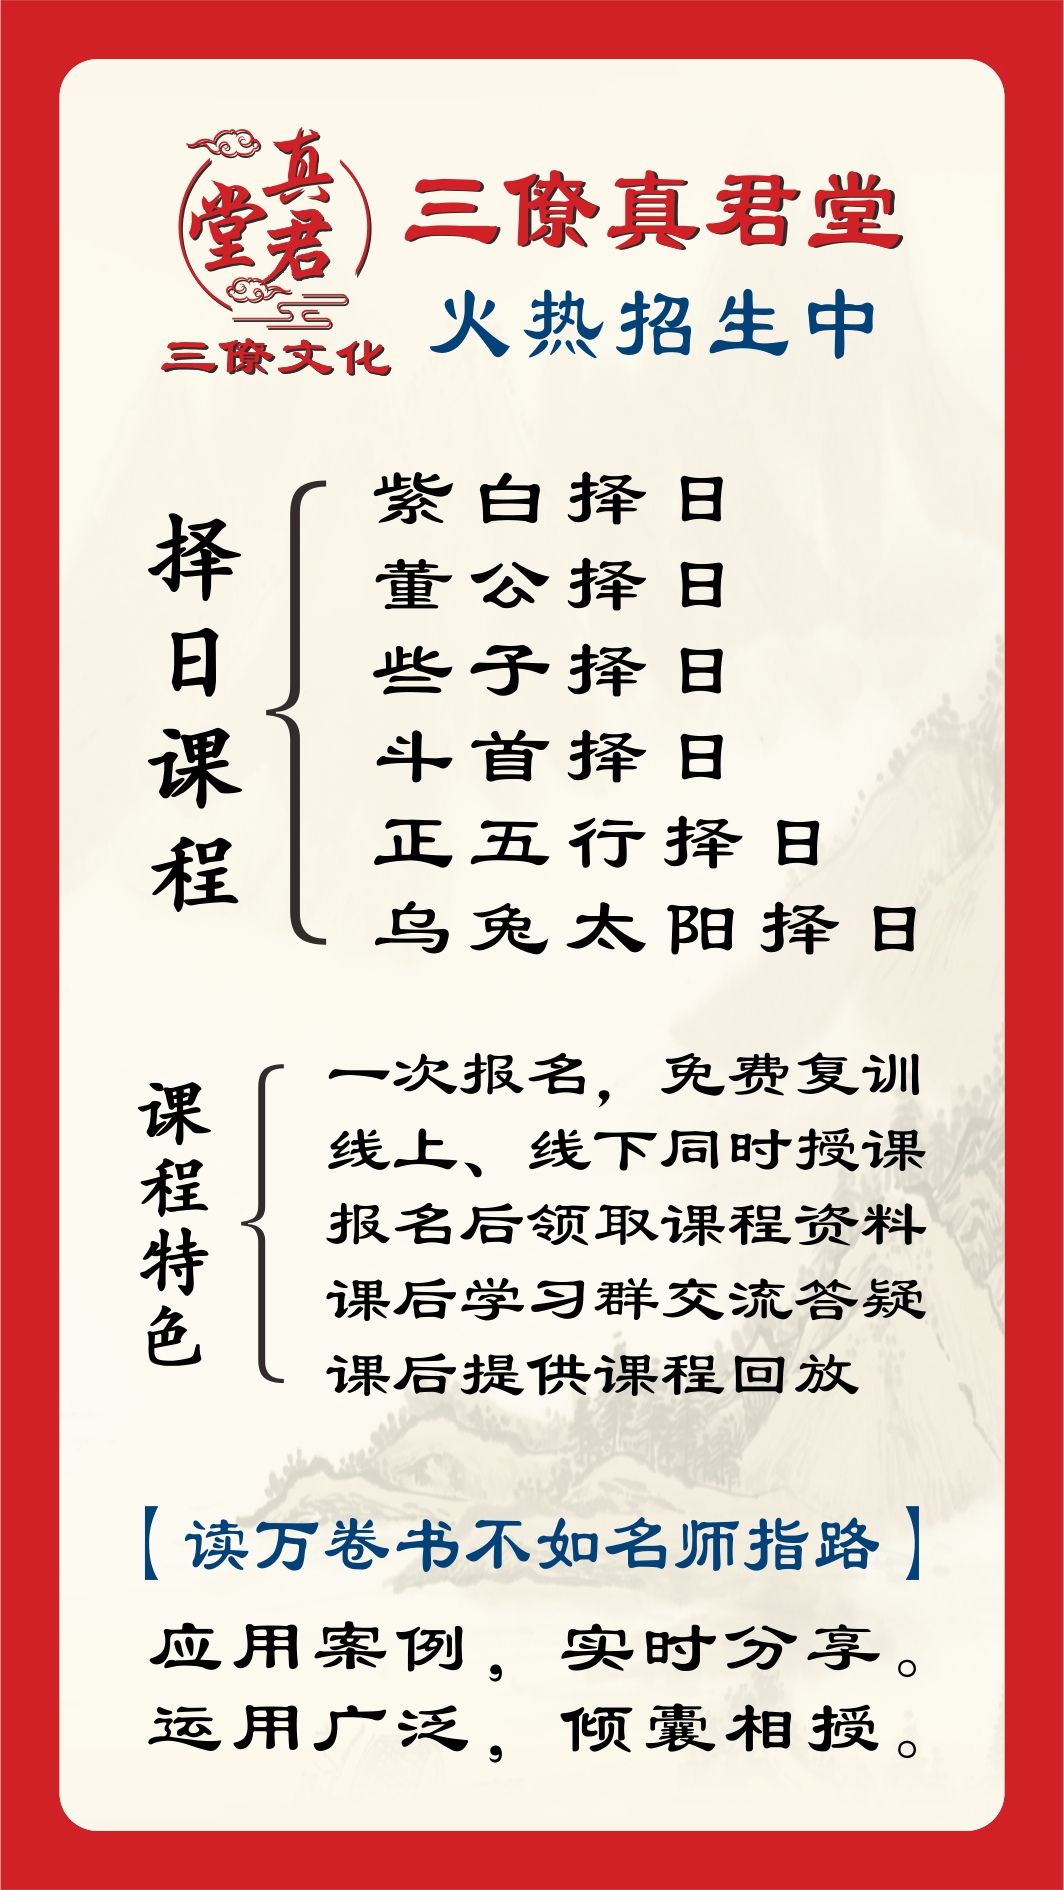 真君堂
三僚文化
三僚真君堂
火热招生中
择日课程
紫白择日
董公择日
些子择日
斗首择日
正五行择日
乌兔太阳择日
课程特色
一次报名，免费复训
线上、线下同时授课
报名后领取课程资料
课后学习群交流答疑
课后提供课程回放
【读万卷书不如名师指路】
应用案例，实时分享。
运用广泛，倾囊相授。